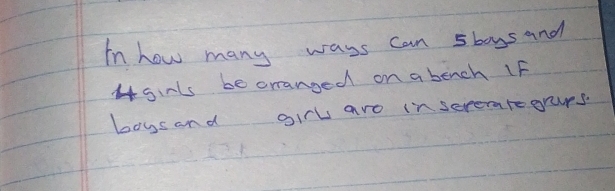 In how many ways can 5 boys and
4 girls be arranged on a bench IF
boys and girls are in seperate groups.